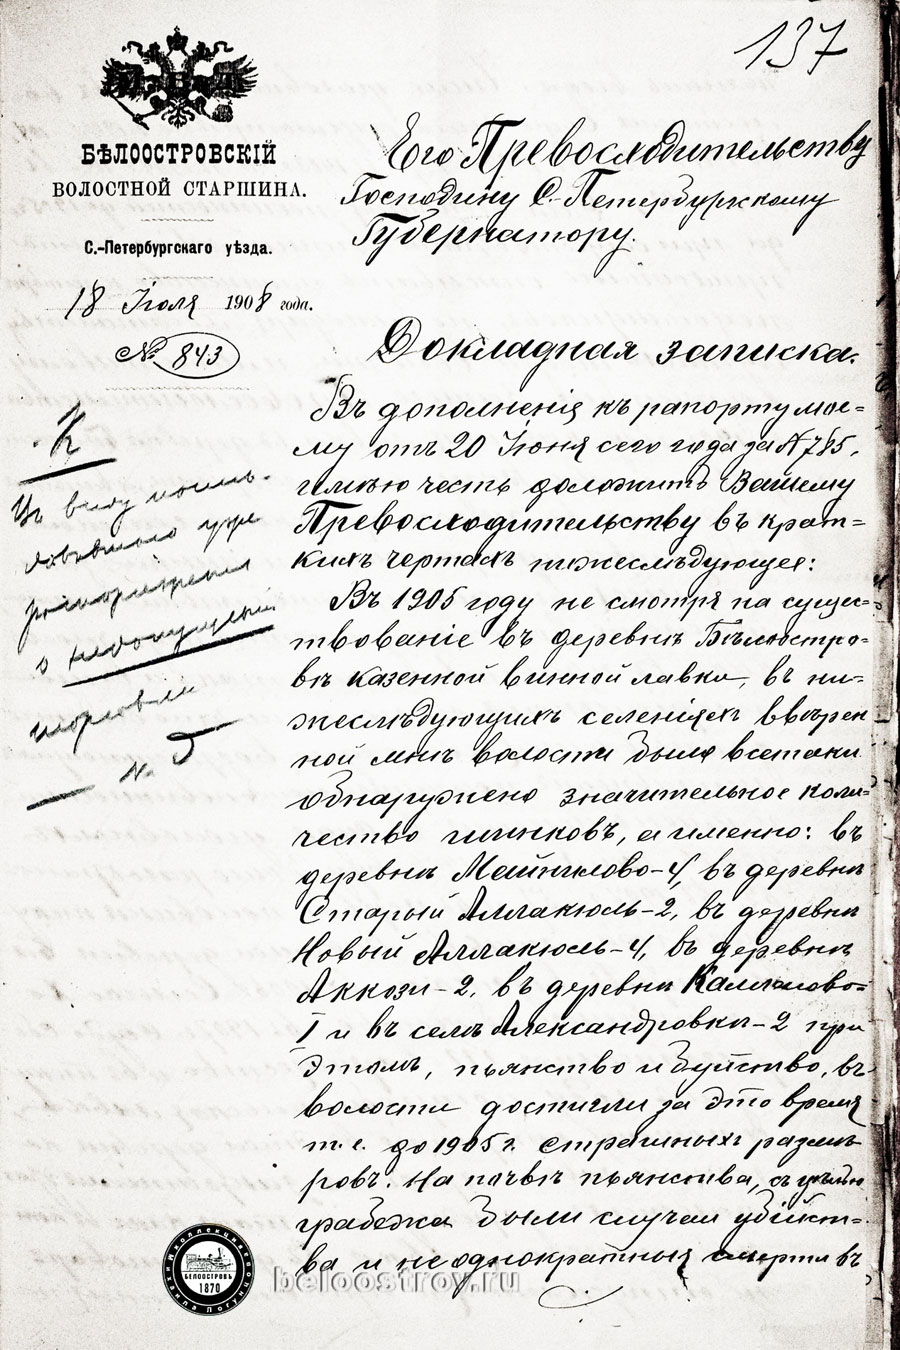 137
БѢЛООСТРОВСКІЙ
ВОЛОСТНОЙ СТАРШИНА.
С.-Петербургскаго уѣзда.
18 Іюля 1908 года.
№ 843
Его Превосходительству
Господину С.-Петербургскому
Губернатору.
Докладная записка.
Въ дополненіе къ рапорту мое=
му отъ 20 Іюня сего года за № 785,
имѣю честь доложить Вашему
Превосходительству въ крат=
кихъ чертахъ нижеслѣдующее:
Въ 1905 году не смотря на сущес=
твованіе въ деревнѣ Бѣлоостро-
вѣ казенной винной лавки, въ ни=
жеслѣдующихъ селеніяхъ ввѣрен
ной мнѣ волости было всетаки
обнаружено значительное коли=
чество шинковъ, а именно: въ
деревнѣ Майнилово-4, въ деревнѣ
Старый Аллакюль-2, въ деревнѣ
Новый Аллакюль-4, въ деревнѣ
Аккази-2, въ деревнѣ Каллилово=
1 и въ селѣ Александровкѣ-2 при
этомъ, пьянство и буйство, въ
волости достигли за это время
т.е. до 1905 г. страшныхъ размѣ
ровъ. На почвѣ пьянства, съ цѣлью
грабежа были случаи убійст=
ва и неоднократныя смерти въ
Въ виду
уже
распоряженія
о недопущеніи
торговли
БЕЛООСТРОВЪ
1870
beloostroy.ru